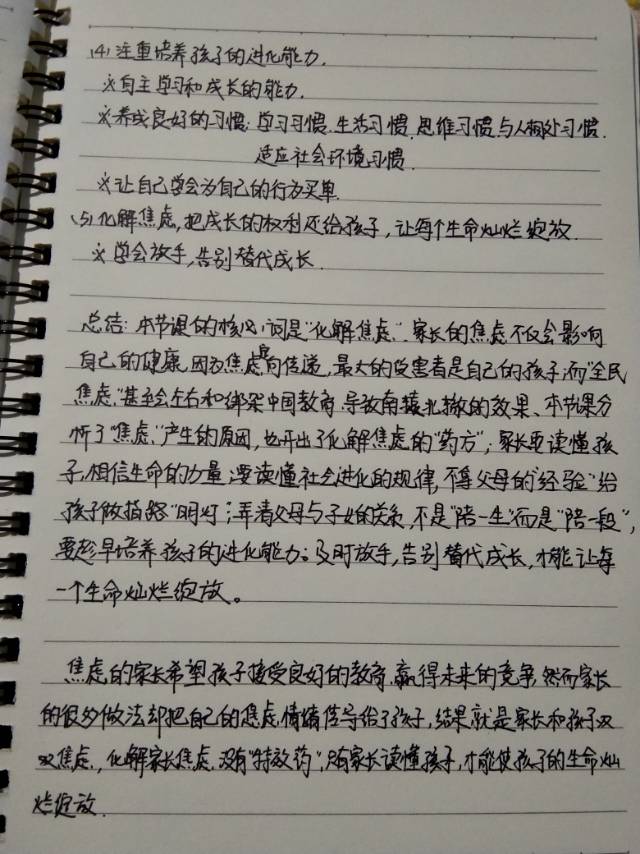 (4)注重培养孩子的进化能力.
※自主学习和成长的能力.
※养成良好的习惯:学习习惯.生活习惯.思维习惯与人相处习惯.
适应社会环境习惯.
※让自己学会为自己的行为买单.
(5)化解焦虑,把成长的权利还给孩子,让每个生命灿烂绽放.
※学会放手,告别替代成长.
总结:本节课的核心词是“化解焦虑”.家长的焦虑不仅会影响
自己的健康.因为焦虑是向传递,最大的受害者是自己的孩子;而“全民
焦虑,”甚至会左右和绑架中国教育.导致南辕北辙的效果、本节课分
析了“焦虑,”产生的原因,也开出了化解焦虑的“药方”;家长要读懂孩
子,相信生命的力量;要读懂社会进化的规律,不拿父母的“经验”给
孩子做指路“明灯”;弄清父母与子女的关系,不是“陪一生”而是“陪一段”,
要趁早培养孩子的进化能力。及时放手,告别替代成长,才能让每
一个生命灿烂绽放。
焦虑的家长希望孩子接受良好的教育.赢得未来的竞争,然而家长
的很多做法却把自己的焦虑,情绪传导给了孩子,结果就是家长和孩子双
双焦虑.,化解家长焦虑.没有“特效药”,只有家长读懂孩子,才能使孩子的生命灿
烂绽放.